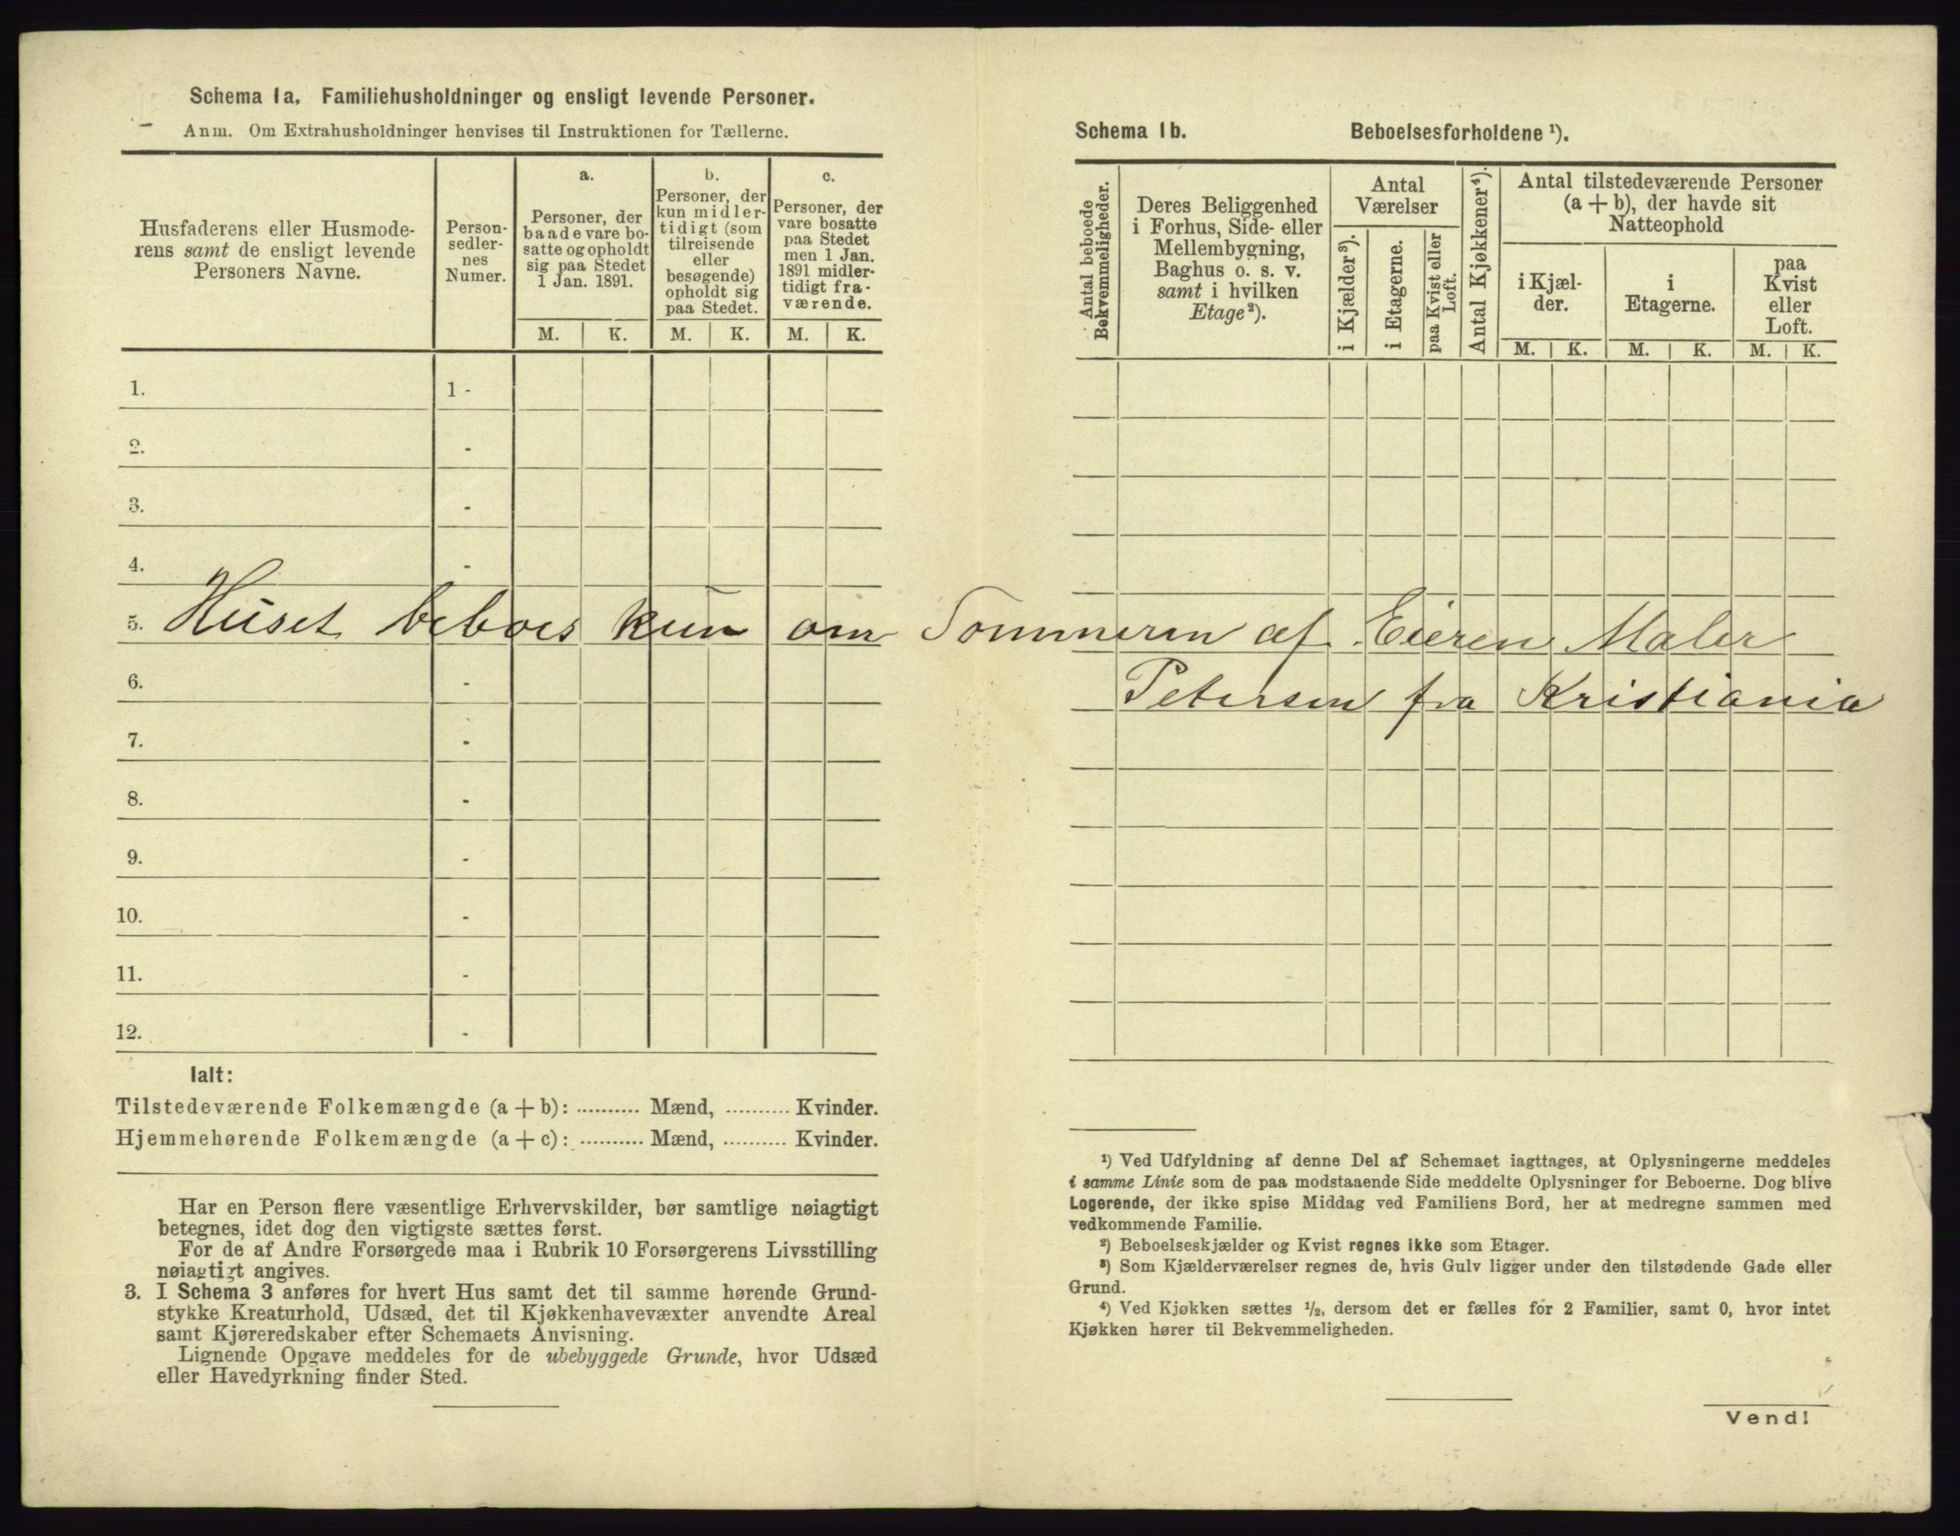 Schema 1a. Familiehusholdninger og ensligt levende Personer.
Anm. Om Extrahusholdninger henvises til Instruktionen for Tællerne.
Husfaderens eller Husmode-
rens samt de ensligt levende
Personers Navne.
Person-
sedler-
nes
Numer.
a.
Personer, der
baade vare bo-
satte og opholdt
sig paa Stedet
1 Jan. 1891.
b.
Personer, der
kun midler-
tidigt (som
tilreisende
eller
besøgende)
opholdt sig
paa Stedet.
c.
Personer, der
vare bosatte
paa Stedet
men 1 Jan.
1891 midler-
tidigt fra-
værende.
M. K. M. K. M. K.
1. 1 -
2. -
3. -
4. -
5. Huset beboes kun om Sommeren af Eieren Maler
6. - Petersen fra Kristiania
7. -
8. -
9. -
10. -
11. -
12. -
Ialt:
Tilstedeværende Folkemængde (a + b): .......... Mænd, .......... Kvinder.
Hjemmehørende Folkemængde (a + c): .......... Mænd, .......... Kvinder.
Har en Person flere væsentlige Erhvervskilder, bør samtlige nøiagtigt
betegnes, idet dog den vigtigste sættes først.
For de af Andre Forsørgede maa i Rubrik 10 Forsørgerens Livsstilling
nøiagtigt angives.
3. I Schema 3 anføres for hvert Hus samt det til samme hørende Grund-
stykke Kreaturhold, Udsæd, det til Kjøkkenhavevæxter anvendte Areal
samt Kjøreredskaber efter Schemaets Anvisning.
Lignende Opgave meddeles for de ubebyggede Grunde, hvor Udsæd
eller Havedyrkning finder Sted.
Schema 1b. Beboelsesforholdene ¹).
Antal beboede
Bekvemmeligheder.
Deres Beliggenhed
i Forhus, Side- eller
Mellembygning,
Baghus o. s. v.
samt i hvilken
Etage²).
Antal
Værelser
i Kjælder³).
i Etagerne.
paa Kvist eller
Loft.
Antal Kjøkkener⁴).
Antal tilstedeværende Personer
(a + b), der havde sit
Natteophold
i Kjæl-
der.
i
Etagerne.
paa
Kvist
eller
Loft.
M. K. M. K. M. K.
¹) Ved Udfyldning af denne Del af Schemaet iagttages, at Oplysningerne meddeles
i samme Linie som de paa modstaaende Side meddelte Oplysninger for Beboerne. Dog blive
Logerende, der ikke spise Middag ved Familiens Bord, her at medregne sammen med
vedkommende Familie.
²) Beboelseskjælder og Kvist regnes ikke som Etager.
³) Som Kjælderværelser regnes de, hvis Gulv ligger under den tilstødende Gade eller
Grund.
⁴) Ved Kjøkken sættes ½, dersom det er fælles for 2 Familier, samt 0, hvor intet
Kjøkken hører til Bekvemmeligheden.
Vend!